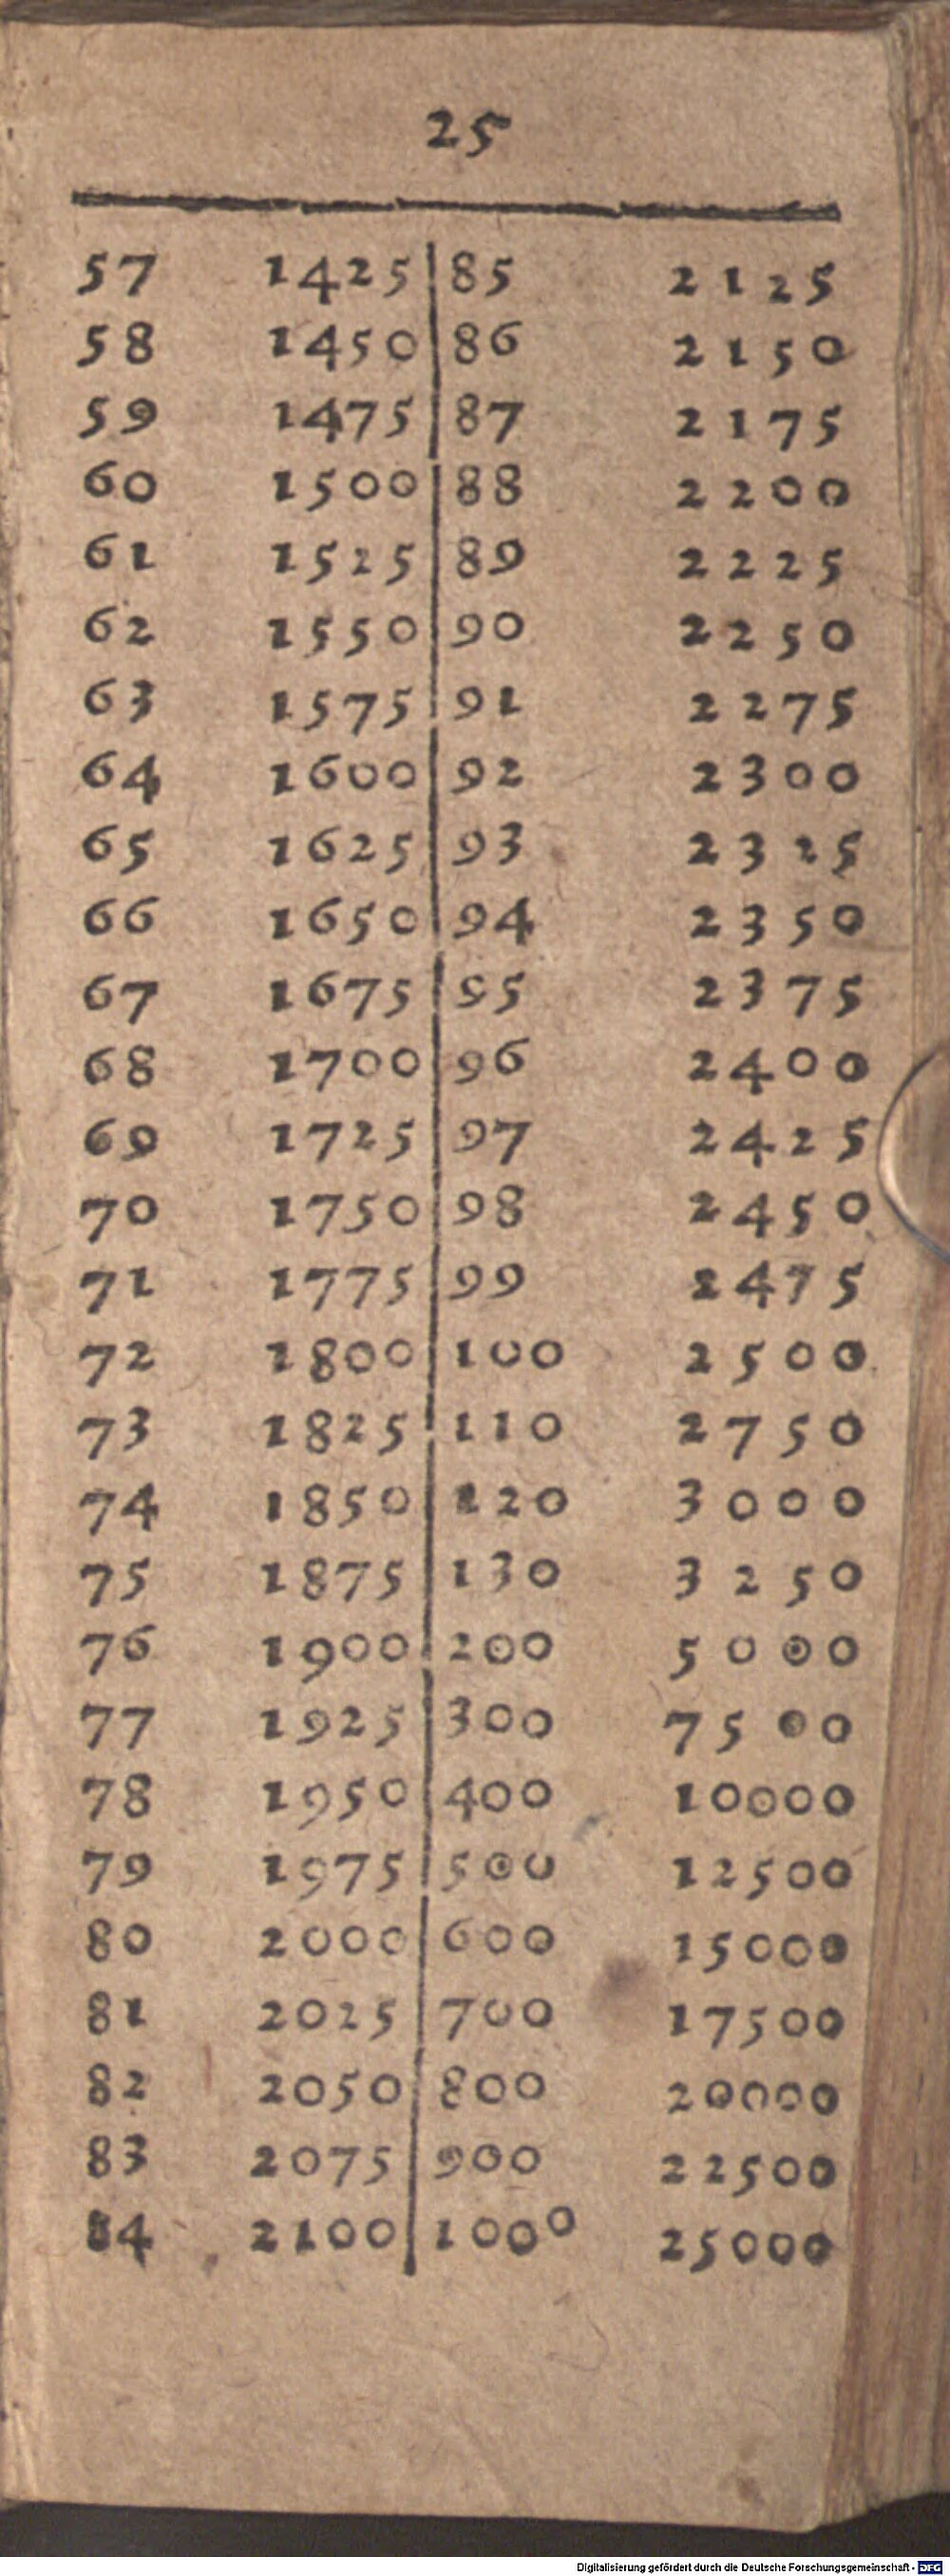 25
57 1425 85 2125
58 1450 86 2150
59 1475 87 2175
60 1500 88 2200
61 1525 89 2225
62 1550 90 2250
63 1575 91 2275
64 1600 92 2300
65 1625 93 2325
66 1650 94 2350
67 1675 95 2375
68 1700 96 2400
69 1725 97 2425
70 1750 98 2450
71 1775 99 2475
72 1800 100 2500
73 1825 110 2750
74 1850 120 3000
75 1875 130 3250
76 1900 200 5000
77 1925 300 7500
78 1950 400 10000
79 1975 500 12500
80 2000 600 15000
81 2025 700 17500
82 2050 800 20000
83 2075 900 22500
84 2100 1000 25000
Digitalisierung gefördert durch die Deutsche Forschungsgemeinschaft - DFG